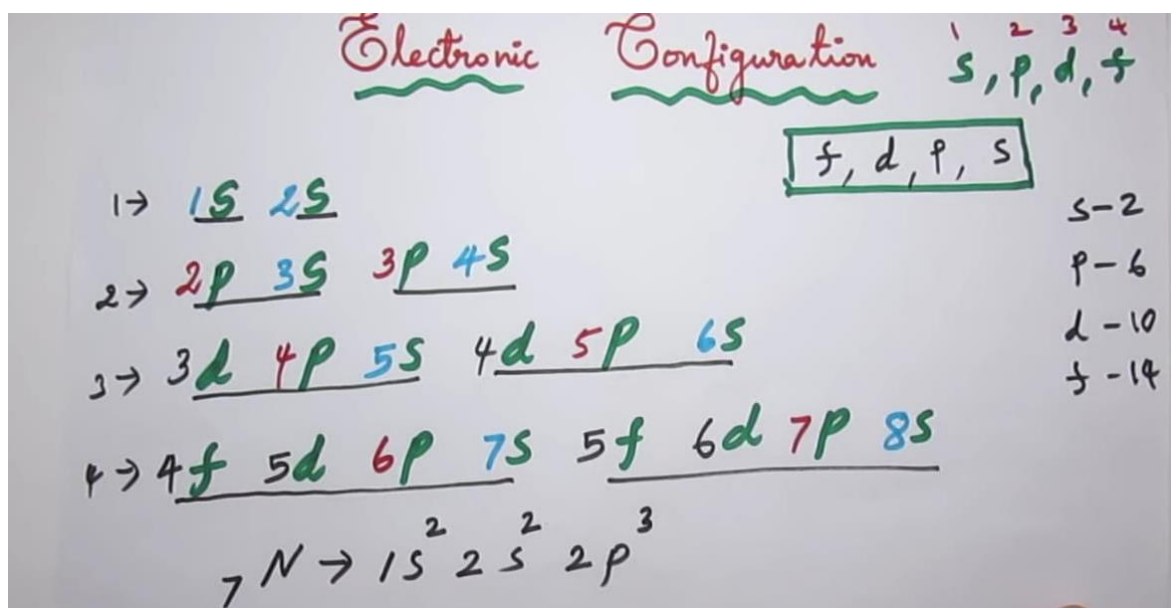 Electronic Configuration
1 2 3 4
s, p, d, f
f, d, p, s
1→ 1s 2s
2→ 2p 3s 3p 4s
3→ 3d 4p 5s 4d 5p 6s
4→ 4f 5d 6p 7s 5f 6d 7p 8s
s-2
p-6
d-10
f-14
₇N → 1s² 2s² 2p³